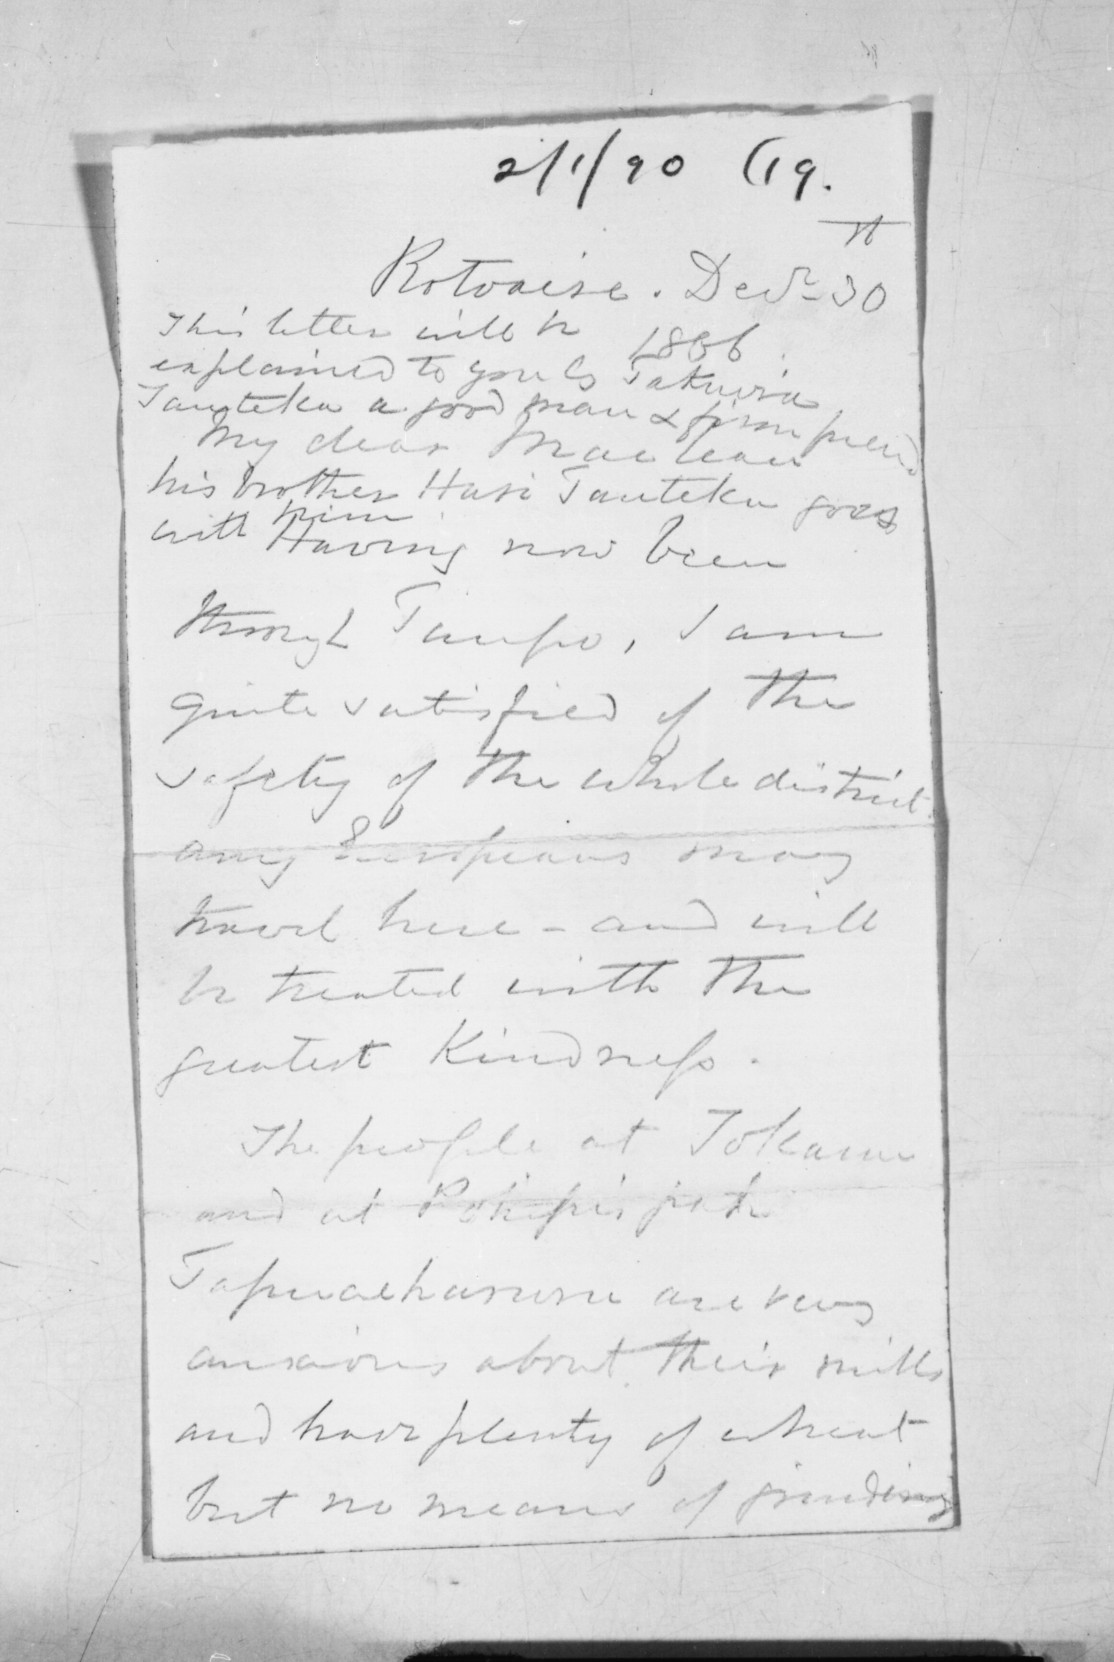 2/1/90 (19.
Rotoaira. Decr 30th
1866.
This letter will be
explained to you by Takuira
Tauteka a good man & firm friend
his brother Hari Tauteka goes
with him.
My dear Maclean
Having now been
through Taupo, I am
quite satisfied of the
safety of the whole district.
any Europeans may
travel here - and will
be treated with the
greatest Kindness.
The people at Tokanu
and at Poihipi's pah
Tapuaeharuru are very
anxious about their mills
and have plenty of wheat
but no means of grinding